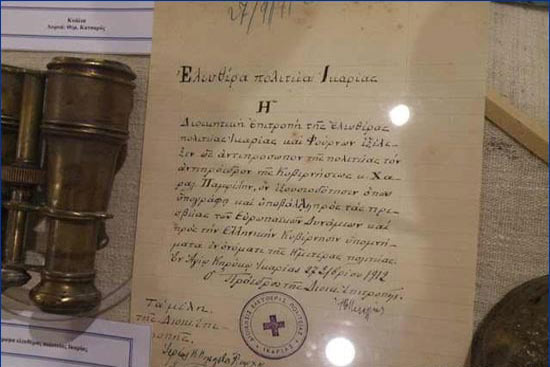 Κυάλια
Δωρεά: Θεμ. Κατσαρός
27/9/71
Ἐλευθέρα πολιτεία Ἰκαρίας
Ἡ
Διοικητικὴ Ἐπιτροπὴ τῆς Ἐλευθέρας
πολιτείας Ἰκαρίας καὶ Φούρνων ἐξέλε-
ξεν ὡς ἀντιπρόσωπον τῆς πολιτείας τὸν
ἀντιπρόεδρον τῆς Κυβερνήσεως κ. Χα-
ραλ. Παμφίλην, ὃν ἐξουσιοδότησεν ὅπως
ὑπογράφῃ καὶ ὑποβάλλῃ πρὸς τὰς πρε-
σβείας τῶν Εὐρωπαϊκῶν Δυνάμεων καὶ
πρὸς τὴν Ἑλληνικὴν Κυβέρνησιν ὑπομνή-
ματα ἐν ὀνόματι τῆς ἡμετέρας πολιτείας.
Ἐν Ἁγίῳ Κηρύκῳ Ἰκαρίας 1912
Ὁ Πρόεδρος τῆς Διοικ. Ἐπιτροπῆς
Τὰ μέλη
τῆς Διοικ. Ἐπι-
τροπῆς
ΕΛΕΥΘΕΡΑΣ ΠΟΛΙΤΕΙΑΣ
ΙΚΑΡΙΑΣ
ελεύθερης πολιτείας Ικαρίας